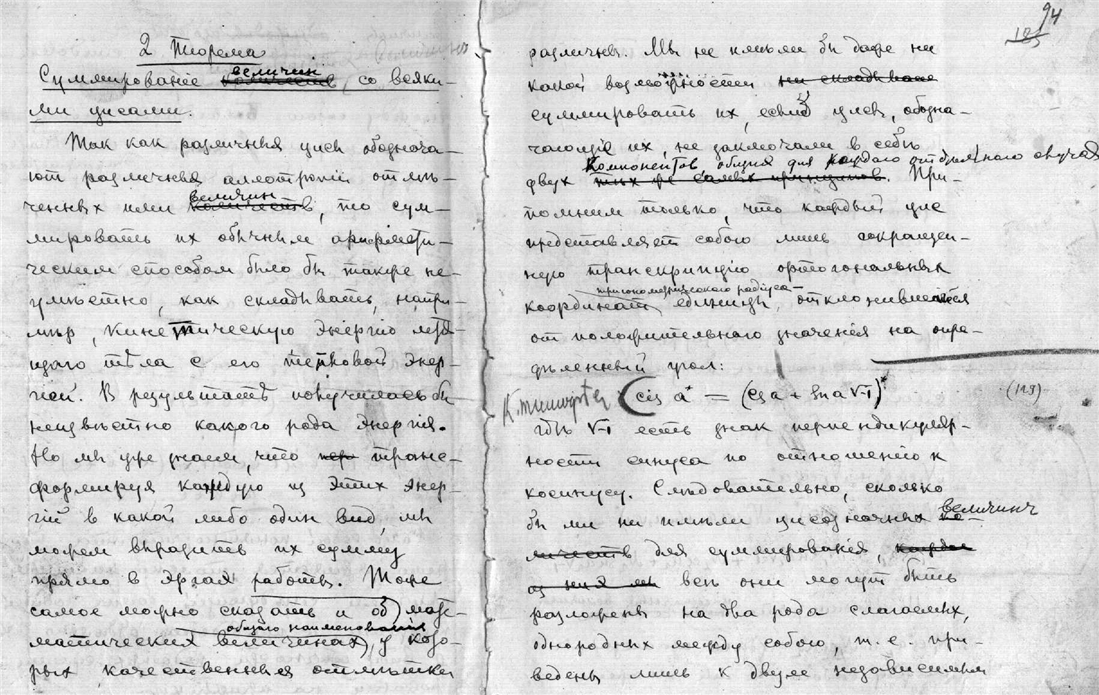 2 Теорема
Суммированіе величин количеств, со всяки-
ми цисами.
Так как различныя цисы обознача-
ют различныя аллотропіи отмѣ-
ченных ими величин количеств, то сум-
мировать их обычным арифмети-
ческим способом было бы также не-
умѣстно, как складывать, напри-
мѣр, кинетическую энергію
щаго тѣла с его тепловой энер-
гіей. В результатѣ получилась бы
неизвѣстно какого рода энергія.
Но мы уже знаем, что транс-
формируя каждую из этих энер-
гій в какой либо один вид, мы
можем выразить их сумму
прямо в эргах работы. Тоже
самое можно сказать и об мате-
общаго наименованія
матических величинах, у кото-
рых качественныя отмѣтки
94
105
различны. Мы не имѣли бы даже ни
какой возможности ни складывать
суммировать их, еслиб цисы, обозна-
чающіе их, не заключали в себѣ
Компонентов общих для каждаго отдѣльнаго случая
двух тѣх же самых принципов. При-
помним только, что каждый цис
представляет собою лишь сокращен-
ную транскрипцію ортогональных
тригонометрическаго радіуса
координат единицы, отклонившейся
от положительнаго значенія на опре-
дѣленный угол:
cis a = (cs a + sn a √-1) (123)
гдѣ √-1 есть знак перпендикуляр-
ности синуса по отношенію к
косинусу. Слѣдовательно, сколько
бы мы ни имѣли цисозначных величинъ ко-
личеств для суммированія, каждое
из них мы всѣ они могут быть
разложены на два рода слагаемых,
однородных между собою, т.е. при-
ведены лишь к двум независимым